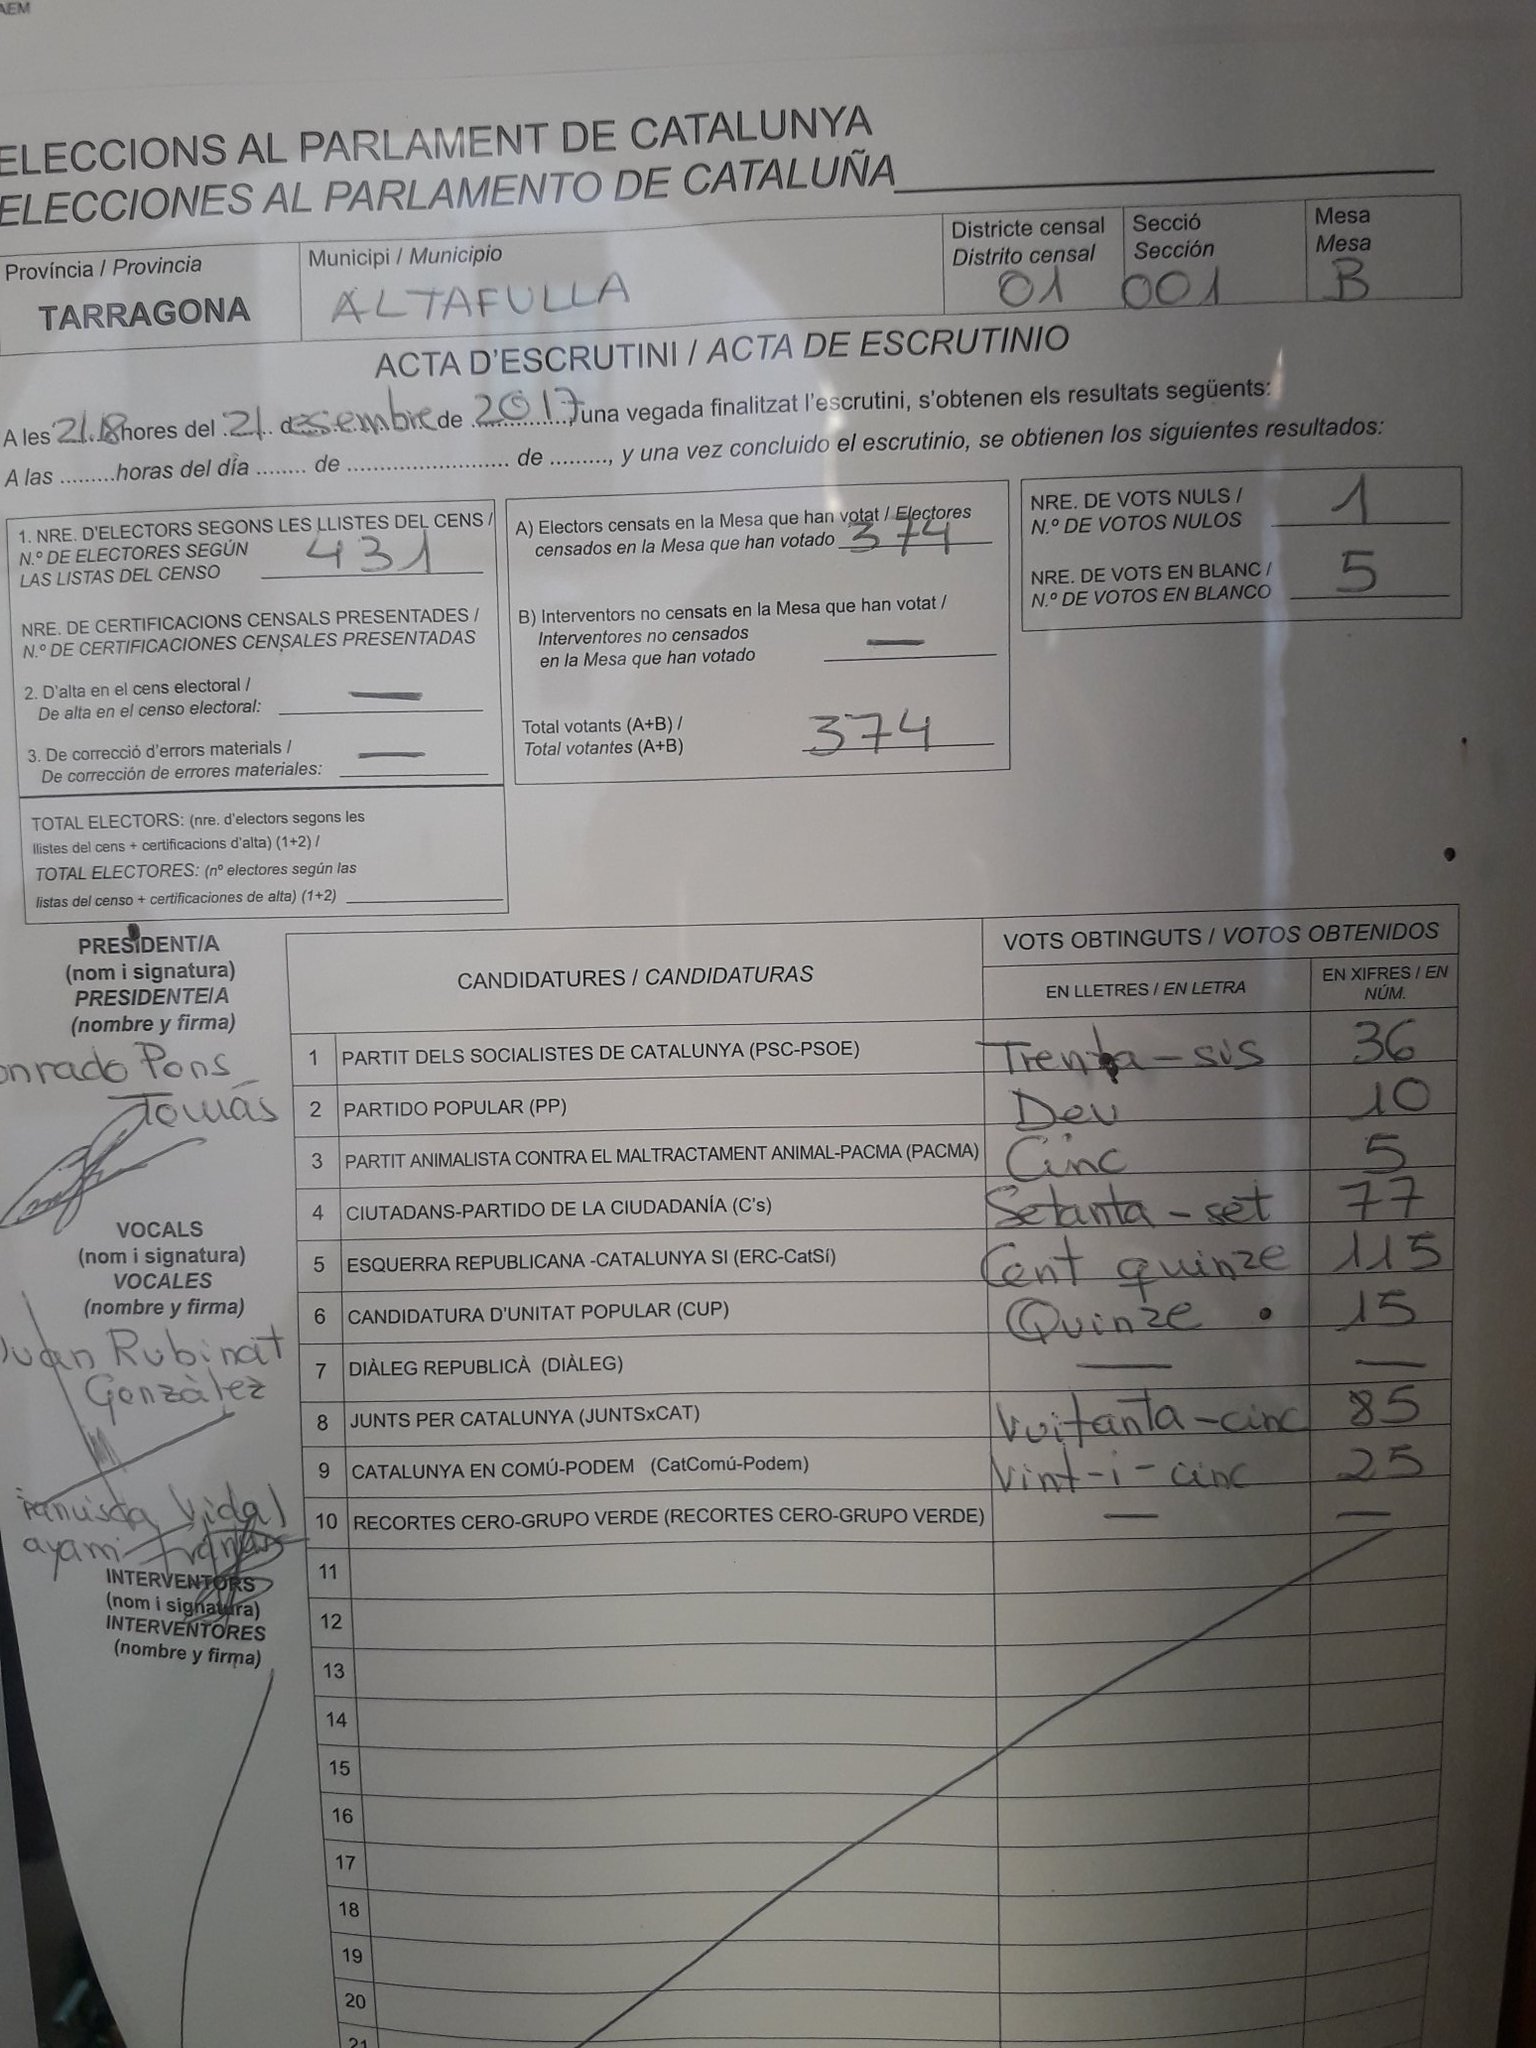 AEM
ELECCIONS AL PARLAMENT DE CATALUNYA
ELECCIONES AL PARLAMENTO DE CATALUÑA
Província / Provincia
TARRAGONA
Municipi / Municipio
ALTAFULLA
Districte censal
Distrito censal
01
Secció
Sección
001
Mesa
Mesa
B
ACTA D'ESCRUTINI / ACTA DE ESCRUTINIO
A les 21.18 hores del 21 desembre de 2017, una vegada finalitzat l'escrutini, s'obtenen els resultats següents:
A las .........horas del día ........ de ......................... de ........., y una vez concluido el escrutinio, se obtienen los siguientes resultados:
1. NRE. D'ELECTORS SEGONS LES LLISTES DEL CENS /
N.º DE ELECTORES SEGÚN
LAS LISTAS DEL CENSO 431
NRE. DE CERTIFICACIONS CENSALS PRESENTADES /
N.º DE CERTIFICACIONES CENSALES PRESENTADAS
2. D'alta en el cens electoral /
De alta en el censo electoral: —
3. De correcció d'errors materials /
De corrección de errores materiales: —
TOTAL ELECTORS: (nre. d'electors segons les
llistes del cens + certificacions d'alta) (1+2) /
TOTAL ELECTORES: (nº electores según las
listas del censo + certificaciones de alta) (1+2)
A) Electors censats en la Mesa que han votat / Electores
censados en la Mesa que han votado 374
B) Interventors no censats en la Mesa que han votat /
Interventores no censados
en la Mesa que han votado —
Total votants (A+B) /
Total votantes (A+B) 374
NRE. DE VOTS NULS /
N.º DE VOTOS NULOS 1
NRE. DE VOTS EN BLANC /
N.º DE VOTOS EN BLANCO 5
PRESIDENT/A
(nom i signatura)
PRESIDENTE/A
(nombre y firma)
onrado Pons
Tomás
VOCALS
(nom i signatura)
VOCALES
(nombre y firma)
Juan Rubinat
Gonzàlez
Vidal
INTERVENTORS
(nom i signatura)
INTERVENTORES
(nombre y firma)
CANDIDATURES / CANDIDATURAS
VOTS OBTINGUTS / VOTOS OBTENIDOS
EN LLETRES / EN LETRA
EN XIFRES / EN
NÚM.
1 PARTIT DELS SOCIALISTES DE CATALUNYA (PSC-PSOE) Trenta-sis 36
2 PARTIDO POPULAR (PP) Deu 10
3 PARTIT ANIMALISTA CONTRA EL MALTRACTAMENT ANIMAL-PACMA (PACMA) Cinc 5
4 CIUTADANS-PARTIDO DE LA CIUDADANÍA (C's) Setanta-set 77
5 ESQUERRA REPUBLICANA -CATALUNYA SI (ERC-CatSí) Cent quinze 115
6 CANDIDATURA D'UNITAT POPULAR (CUP) Quinze 15
7 DIÀLEG REPUBLICÀ (DIÀLEG) — —
8 JUNTS PER CATALUNYA (JUNTSxCAT) Vuitanta-cinc 85
9 CATALUNYA EN COMÚ-PODEM (CatComú-Podem) Vint-i-cinc 25
10 RECORTES CERO-GRUPO VERDE (RECORTES CERO-GRUPO VERDE) — —
11
12
13
14
15
16
17
18
19
20
21